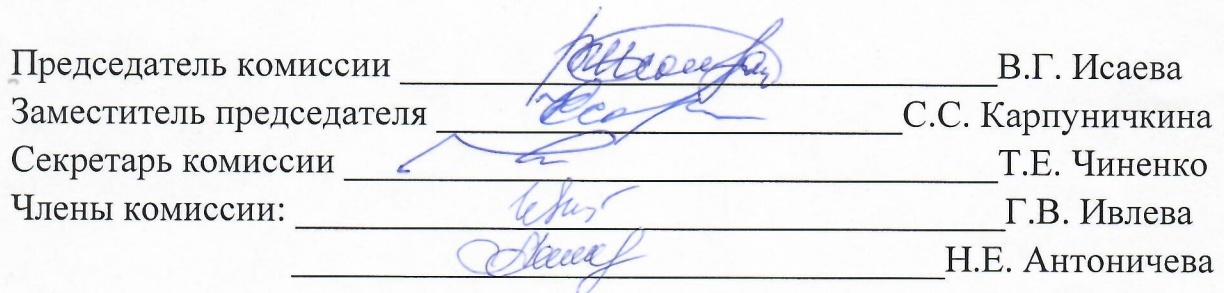 Председатель комиссии В.Г. Исаева
Заместитель председателя С.С. Карпуничкина
Секретарь комиссии Т.Е. Чиненко
Члены комиссии: Г.В. Ивлева
Н.Е. Антоничева